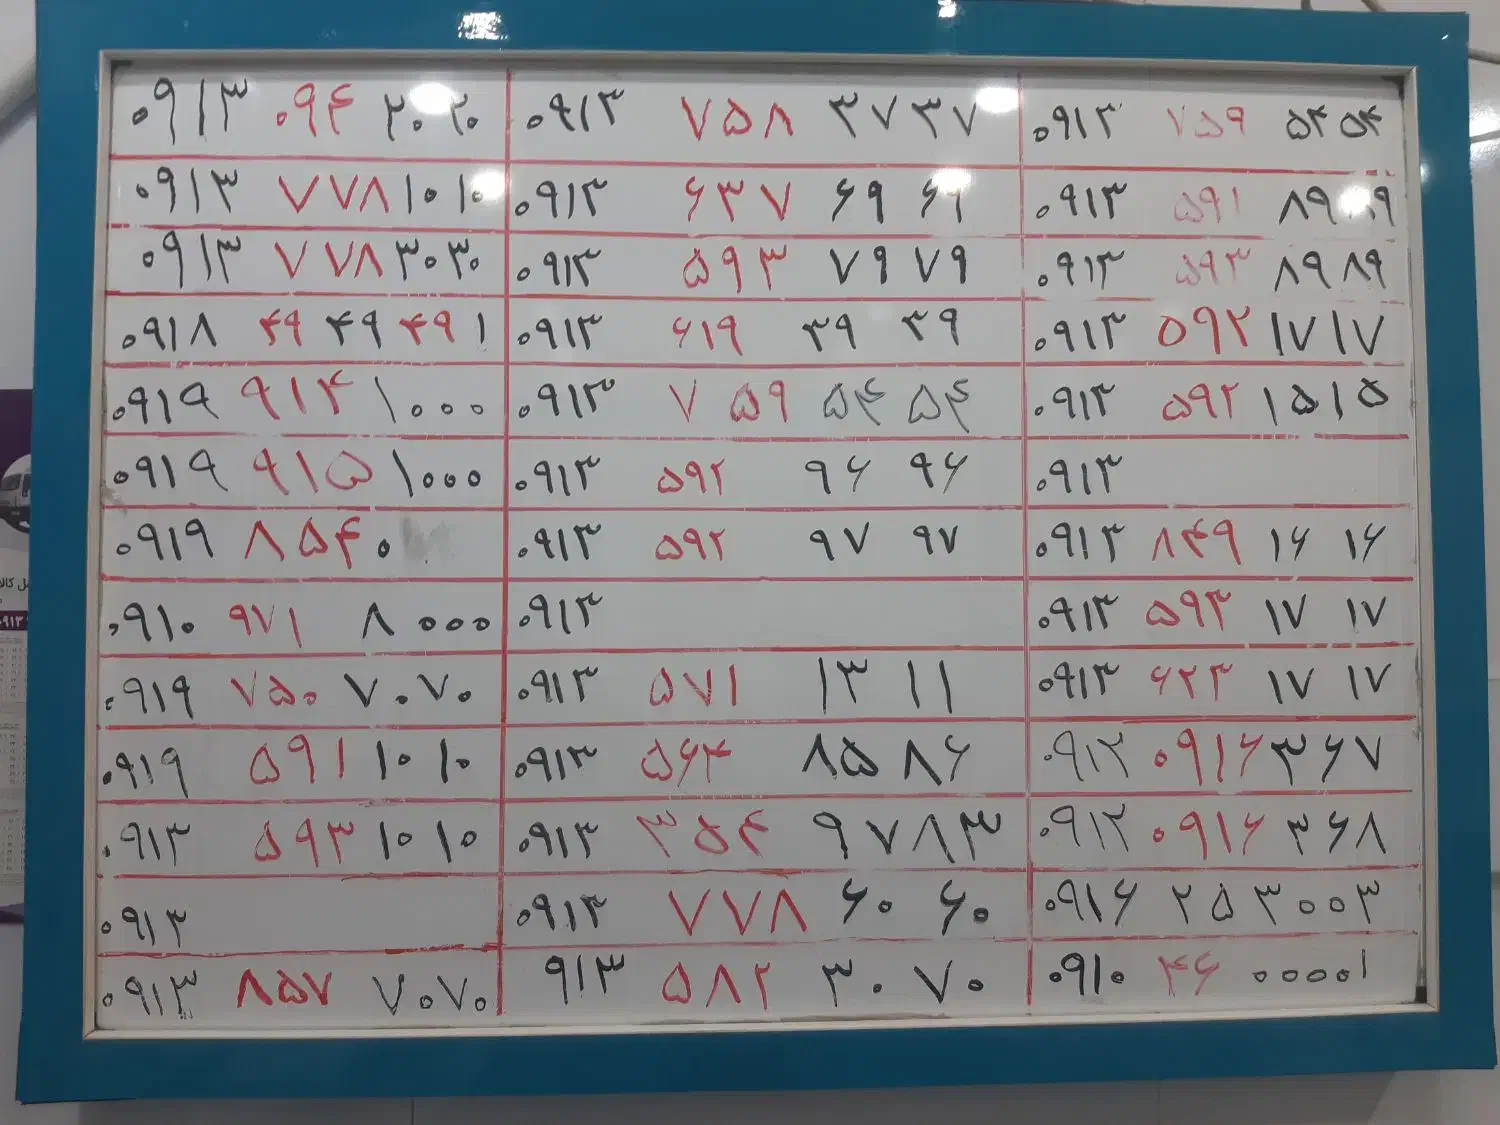 ۰۹۱۳ ۰۹۴ ۲۰۲۰
۰۹۱۳ ۷۷۸ ۱۰۱۰
۰۹۱۳ ۷۷۸ ۳۰۳۰
۰۹۱۸ ۴۹ ۴۹ ۴۹ ۱
۰۹۱۹ ۹۱۴ ۱۰۰۰
۰۹۱۹ ۹۱۵ ۱۰۰۰
۰۹۱۹ ۸۵۴۰
۰۹۱۰ ۹۷۱ ۸۰۰۰
۰۹۱۹ ۷۵۰ ۷۰۷۰
۰۹۱۹ ۵۹۱ ۱۰۱۰
۰۹۱۳ ۵۹۳ ۱۰۱۰
۰۹۱۳
۰۹۱۳ ۸۵۷ ۷۰۷۰
۰۹۱۳ ۷۵۸ ۳۷۳۷
۰۹۱۳ ۶۳۷ ۶۹ ۶۹
۰۹۱۳ ۵۹۳ ۷۹ ۷۹
۰۹۱۳ ۶۱۹ ۳۹ ۳۹
۰۹۱۳ ۷۵۹ ۵۴ ۵۴
۰۹۱۳ ۵۹۲ ۹۶ ۹۶
۰۹۱۳ ۵۹۲ ۹۷ ۹۷
۰۹۱۳
۰۹۱۳ ۵۷۱ ۱۳ ۱۱
۰۹۱۳ ۵۶۴ ۸۵ ۸۶
۰۹۱۳ ۳۵۴ ۹۷۸۳
۰۹۱۳ ۷۷۸ ۶۰ ۶۰
۹۱۳ ۵۸۲ ۳۰ ۷۰
۰۹۱۳ ۷۵۹ ۵۴ ۵۴
۰۹۱۳ ۵۹۱ ۸۹ ۸۹
۰۹۱۳ ۵۹۳ ۸۹ ۸۹
۰۹۱۳ ۵۹۲ ۱۷ ۱۷
۰۹۱۳ ۵۹۲ ۱۵ ۱۵
۰۹۱۳
۰۹۱۳ ۸۴۹ ۱۶ ۱۶
۰۹۱۳ ۵۹۳ ۱۷ ۱۷
۰۹۱۳ ۶۲۳ ۱۷ ۱۷
۰۹۱۲ ۰۹۱۶ ۳۶۷
۰۹۱۲ ۰۹۱۶ ۳۶۸
۰۹۱۶ ۲۵۳۰۰۳
۰۹۱۰ ۴۶ ۰۰۰۰۱